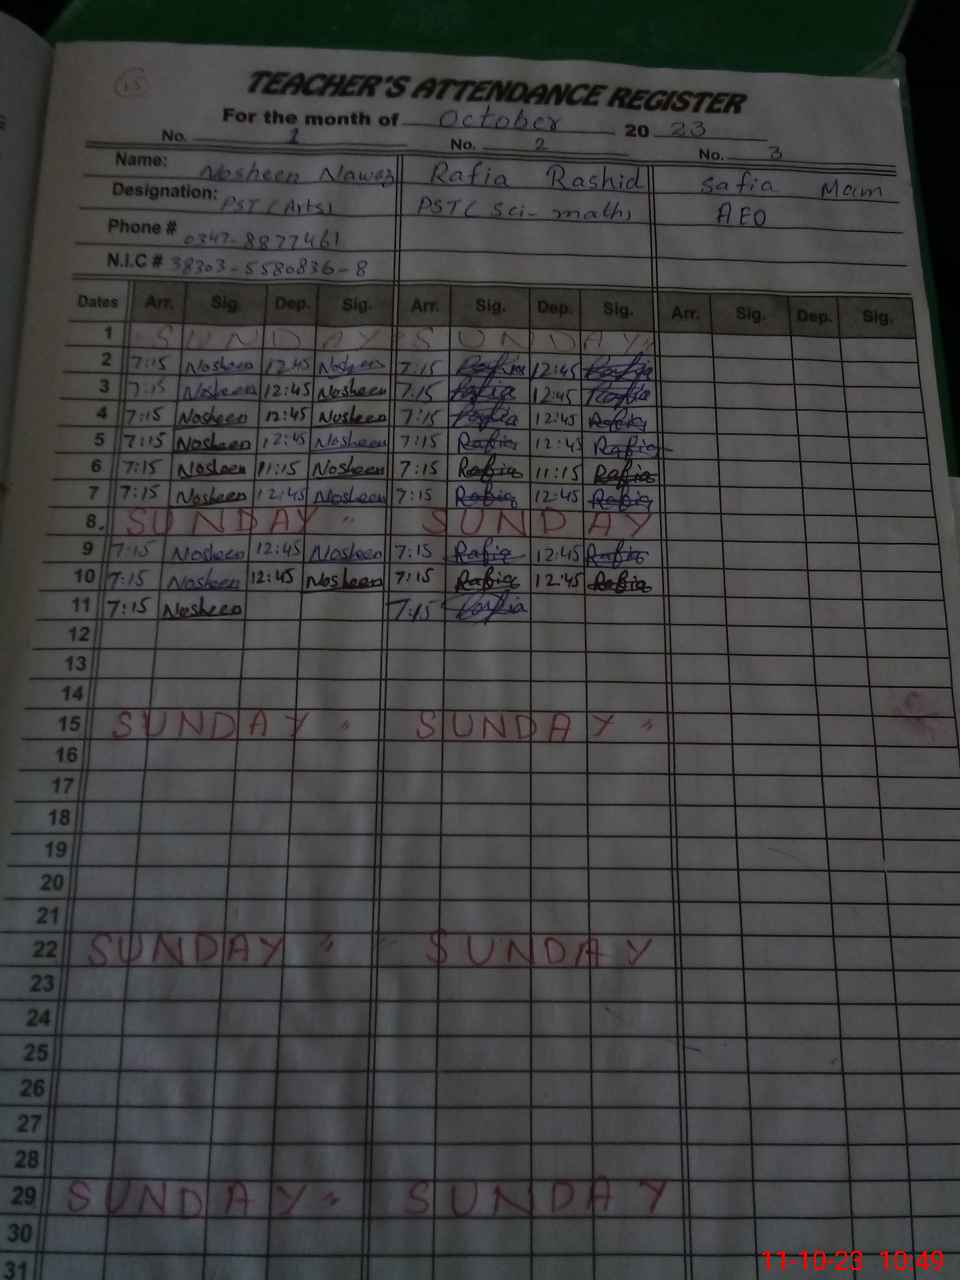 15
TEACHER'S ATTENDANCE REGISTER
For the month of October 2023
No. 1 No. 2 No. 3
Name: Nosheen Nawaz Rafia Rashid Safia Mam
Designation: PST (Arts) PST (Sci-math) AEO
Phone # 0347-8877461
N.I.C # 38303-5580836-8
Dates Arr. Sig. Dep. Sig. Arr. Sig. Dep. Sig. Arr. Sig. Dep. Sig.
1 SUNDAY " SUNDAY "
2 7:15 Nosheen 12:45 Nosheen 7:15 Rafia 12:45 Rafia
3 7:15 Nosheen 12:45 Nosheen 7:15 Rafia 12:45 Rafia
4 7:15 Nosheen 12:45 Nosheen 7:15 Rafia 12:45 Rafia
5 7:15 Nosheen 12:45 Nosheen 7:15 Rafia 12:45 Rafia
6 7:15 Nosheen 11:15 Nosheen 7:15 Rafia 11:15 Rafia
7 7:15 Nosheen 12:45 Nosheen 7:15 Rafia 12:45 Rafia
8. SUNDAY " SUNDAY
9 7:15 Nosheen 12:45 Nosheen 7:15 Rafia 12:45 Rafia
10 7:15 Nosheen 12:45 Nosheen 7:15 Rafia 12:45 Rafia
11 7:15 Nosheen 7:15 Rafia
12
13
14
15 SUNDAY " SUNDAY "
16
17
18
19
20
21
22 SUNDAY " SUNDAY
23
24
25
26
27
28
29 SUNDAY " SUNDAY
30
31
11-10-23 10:49